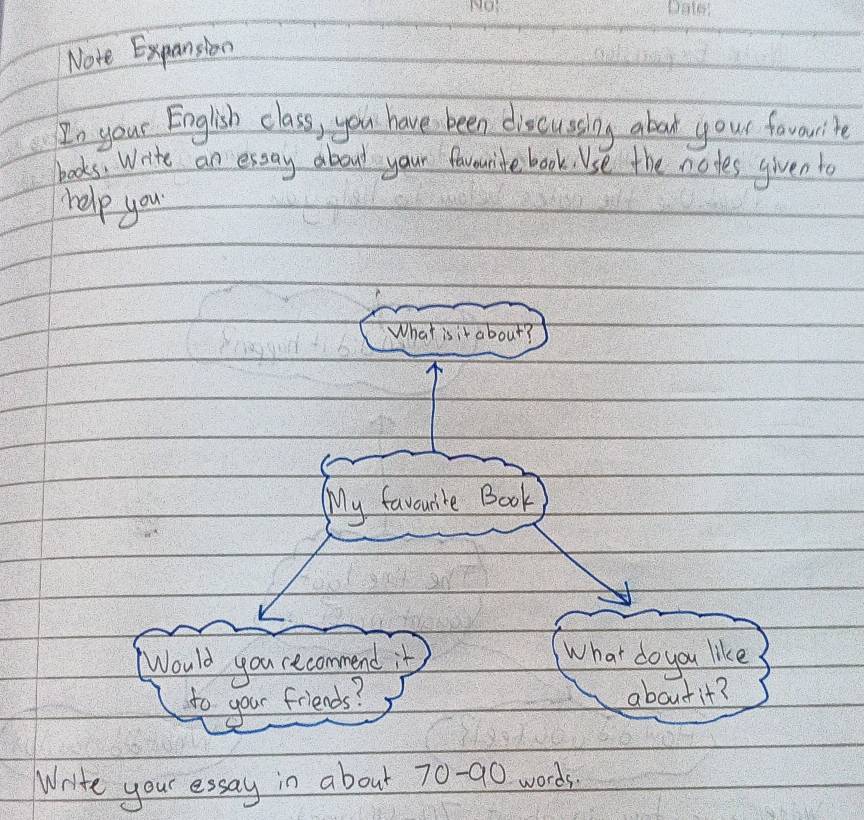 No:
Date:
Note Expansion
In your English class, you have been discussing about your favourite
books. Write an essay about your favourite book. Use the notes given to
help you.
What is it about?
My favourite Book
Would you recommend it
to your friends?
What do you like
about it?
Write your essay in about 70-90 words.